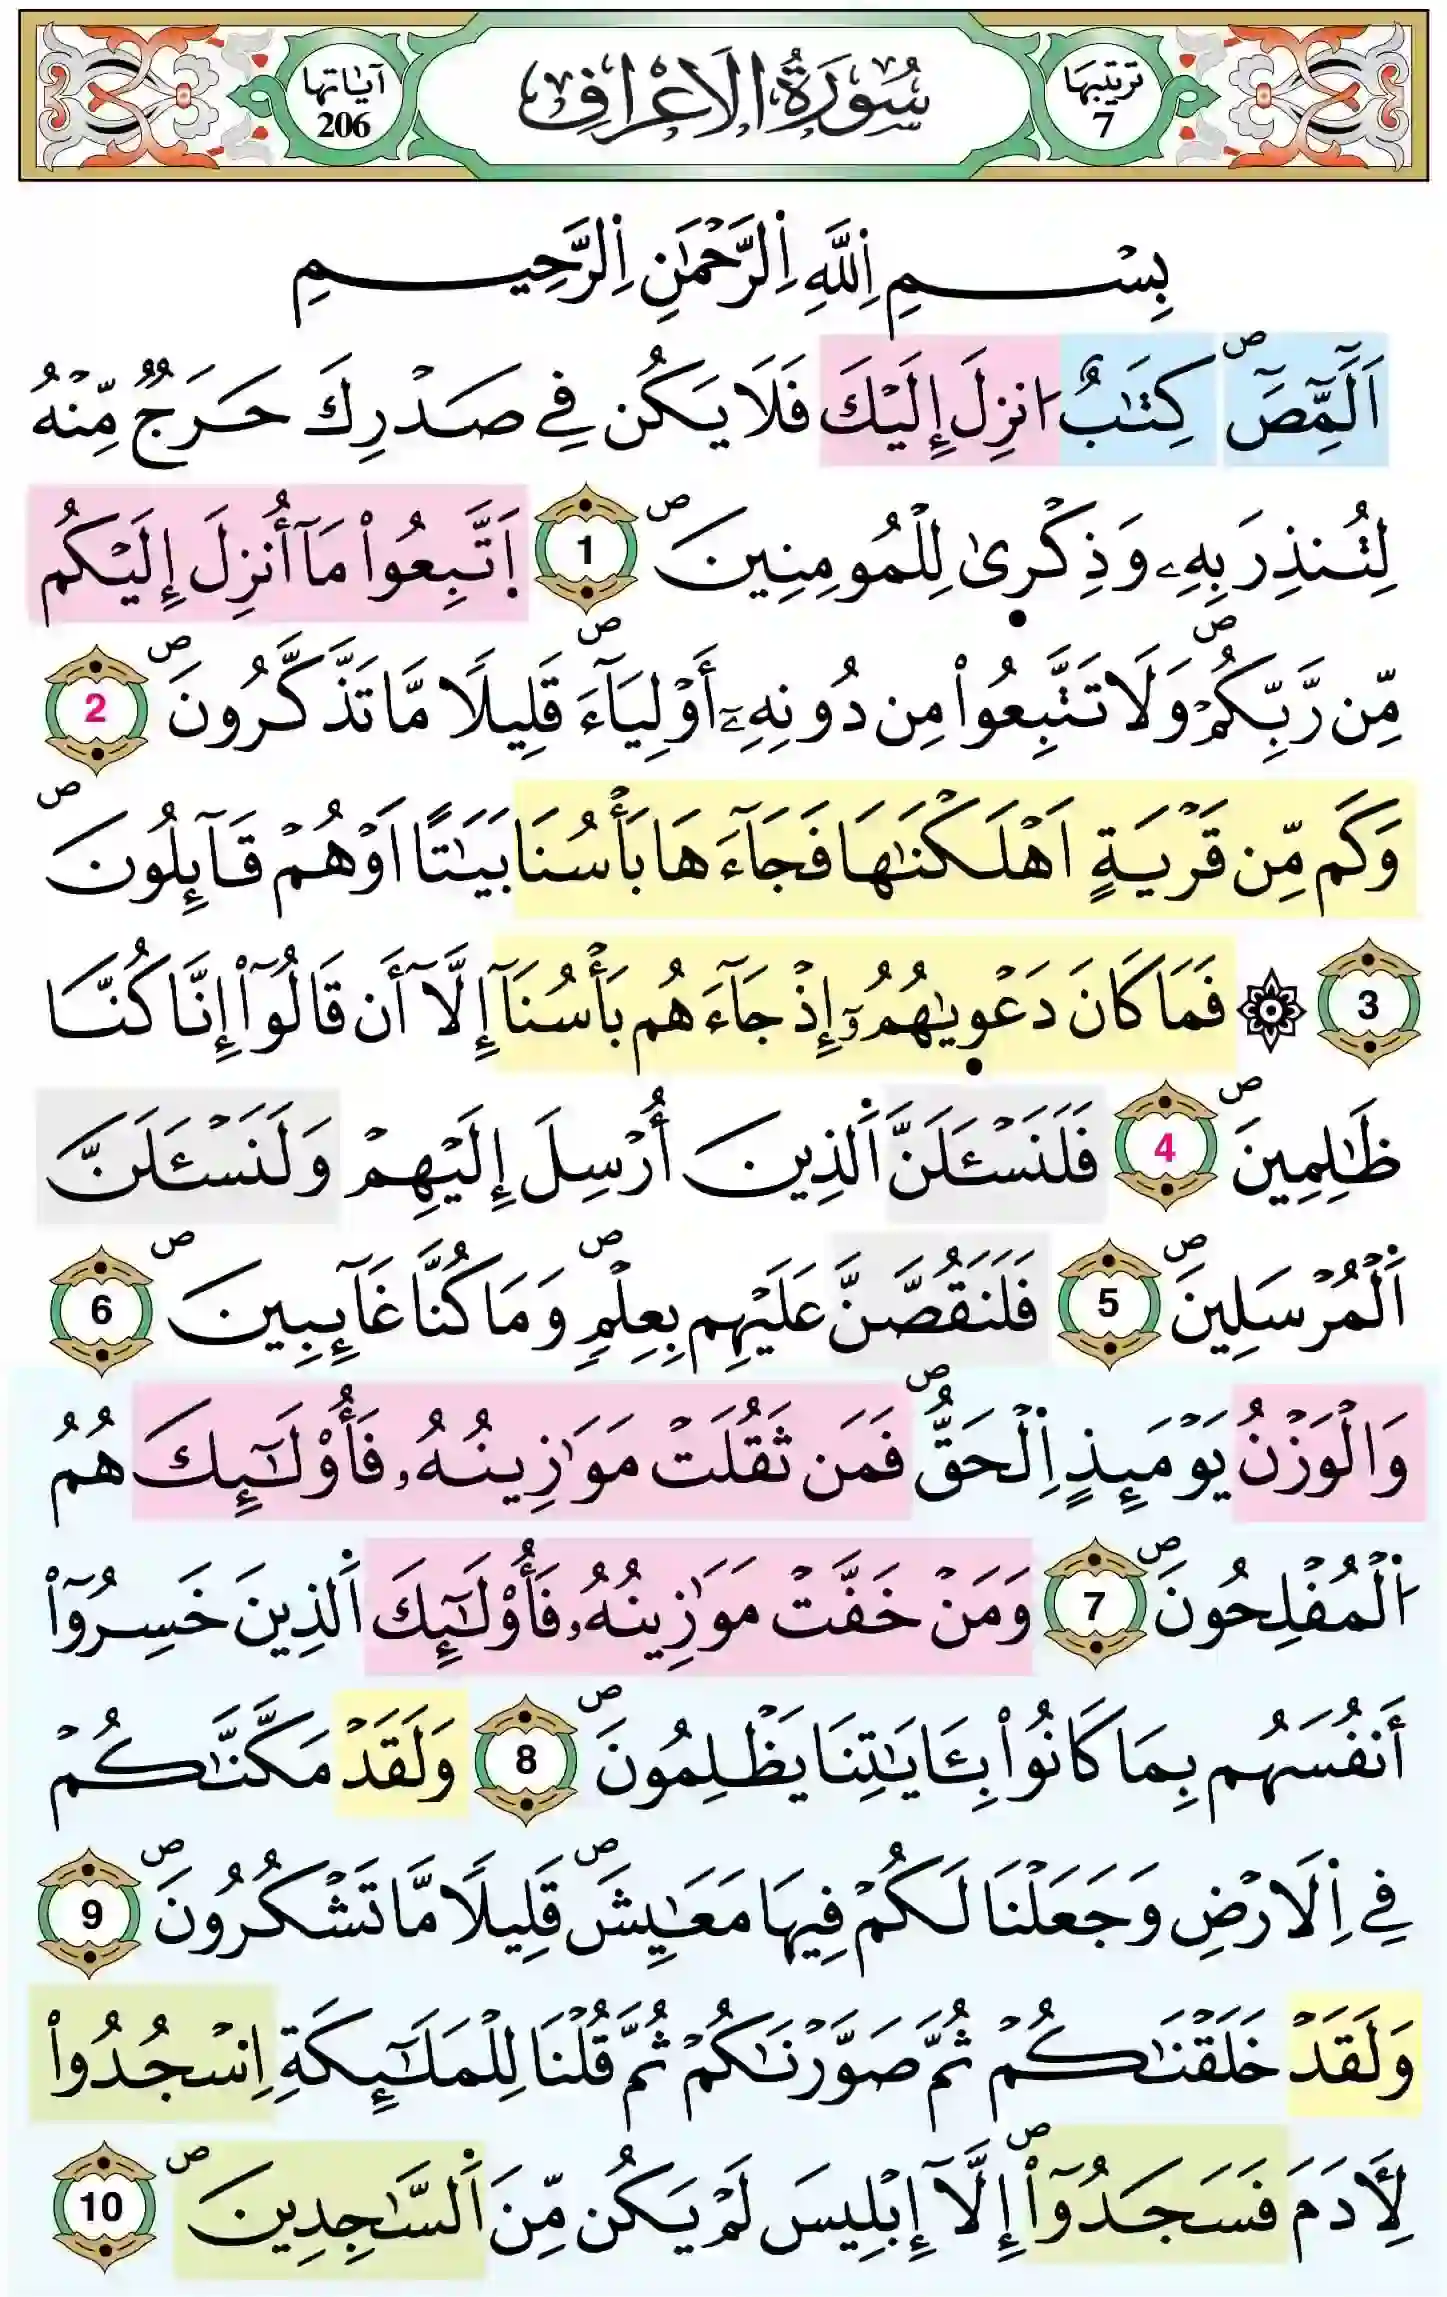 ترتيبها 7
سُورَةُ الاَعْرَافِ
آياتها 206
بِسْمِ اِ۬للَّهِ اِ۬لرَّحْمَٰنِ اِ۬لرَّحِيمِ
أَلَٓمِّٓصَٓۖ كِتَٰبٌ ا۟نزِلَ إِلَيْكَ فَلَا يَكُن فِے صَدْرِكَ حَرَجٌ مِّنْهُ
لِتُنذِرَ بِهِۦ وَذِكْر۪ىٰ لِلْمُومِنِينَۖ 1 اَ۪تَّبِعُواْ مَآ أُنزِلَ إِلَيْكُم
مِّن رَّبِّكُمْۖ وَلَا تَتَّبِعُواْ مِن دُونِهِۦٓ أَوْلِيَآءَۖ قَلِيلًا مَّا تَذَّكَّرُونَۖ 2
وَكَم مِّن قَرْيَةٍ اَهْلَكْنَٰهَا فَجَآءَهَا بَأْسُنَا بَيَٰتًا اَوْ هُمْ قَآئِلُونَۖ
3 ۞ فَمَا كَانَ دَعْو۪يٰهُمُۥٓ إِذْ جَآءَهُم بَأْسُنَآ إِلَّآ أَن قَالُوٓاْ إِنَّا كُنَّا
ظَٰلِمِينَۖ 4 فَلَنَسْـَٔلَنَّ اَ۬لذِينَ أُرْسِلَ إِلَيْهِمْ وَلَنَسْـَٔلَنَّ
اَ۬لْمُرْسَلِينَۖ 5 فَلَنَقُصَّنَّ عَلَيْهِم بِعِلْمٍۖ وَمَا كُنَّا غَآئِبِينَۖ 6
وَالْوَزْنُ يَوْمَئِذٍ اِ۬لْحَقُّۖ فَمَن ثَقُلَتْ مَوَٰزِينُهُۥ فَأُوْلَٰٓئِكَ هُمُ
اُ۬لْمُفْلِحُونَۖ 7 وَمَنْ خَفَّتْ مَوَٰزِينُهُۥ فَأُوْلَٰٓئِكَ اَ۬لذِينَ خَسِرُوٓاْ
أَنفُسَهُم بِمَا كَانُواْ بِـَٔايَٰتِنَا يَظْلِمُونَۖ 8 وَلَقَدْ مَكَّنَّٰكُمْ
فِے اِ۬لَارْضِ وَجَعَلْنَا لَكُمْ فِيهَا مَعَٰيِشَۖ قَلِيلًا مَّا تَشْكُرُونَۖ 9
وَلَقَدْ خَلَقْنَٰكُمْ ثُمَّ صَوَّرْنَٰكُمْ ثُمَّ قُلْنَا لِلْمَلَٰٓئِكَةِ اِ۟سْجُدُواْ
لِأٓدَمَ فَسَجَدُوٓاْۖ إِلَّآ إِبْلِيسَ لَمْ يَكُن مِّنَ اَ۬لسَّٰجِدِينَۖ 10